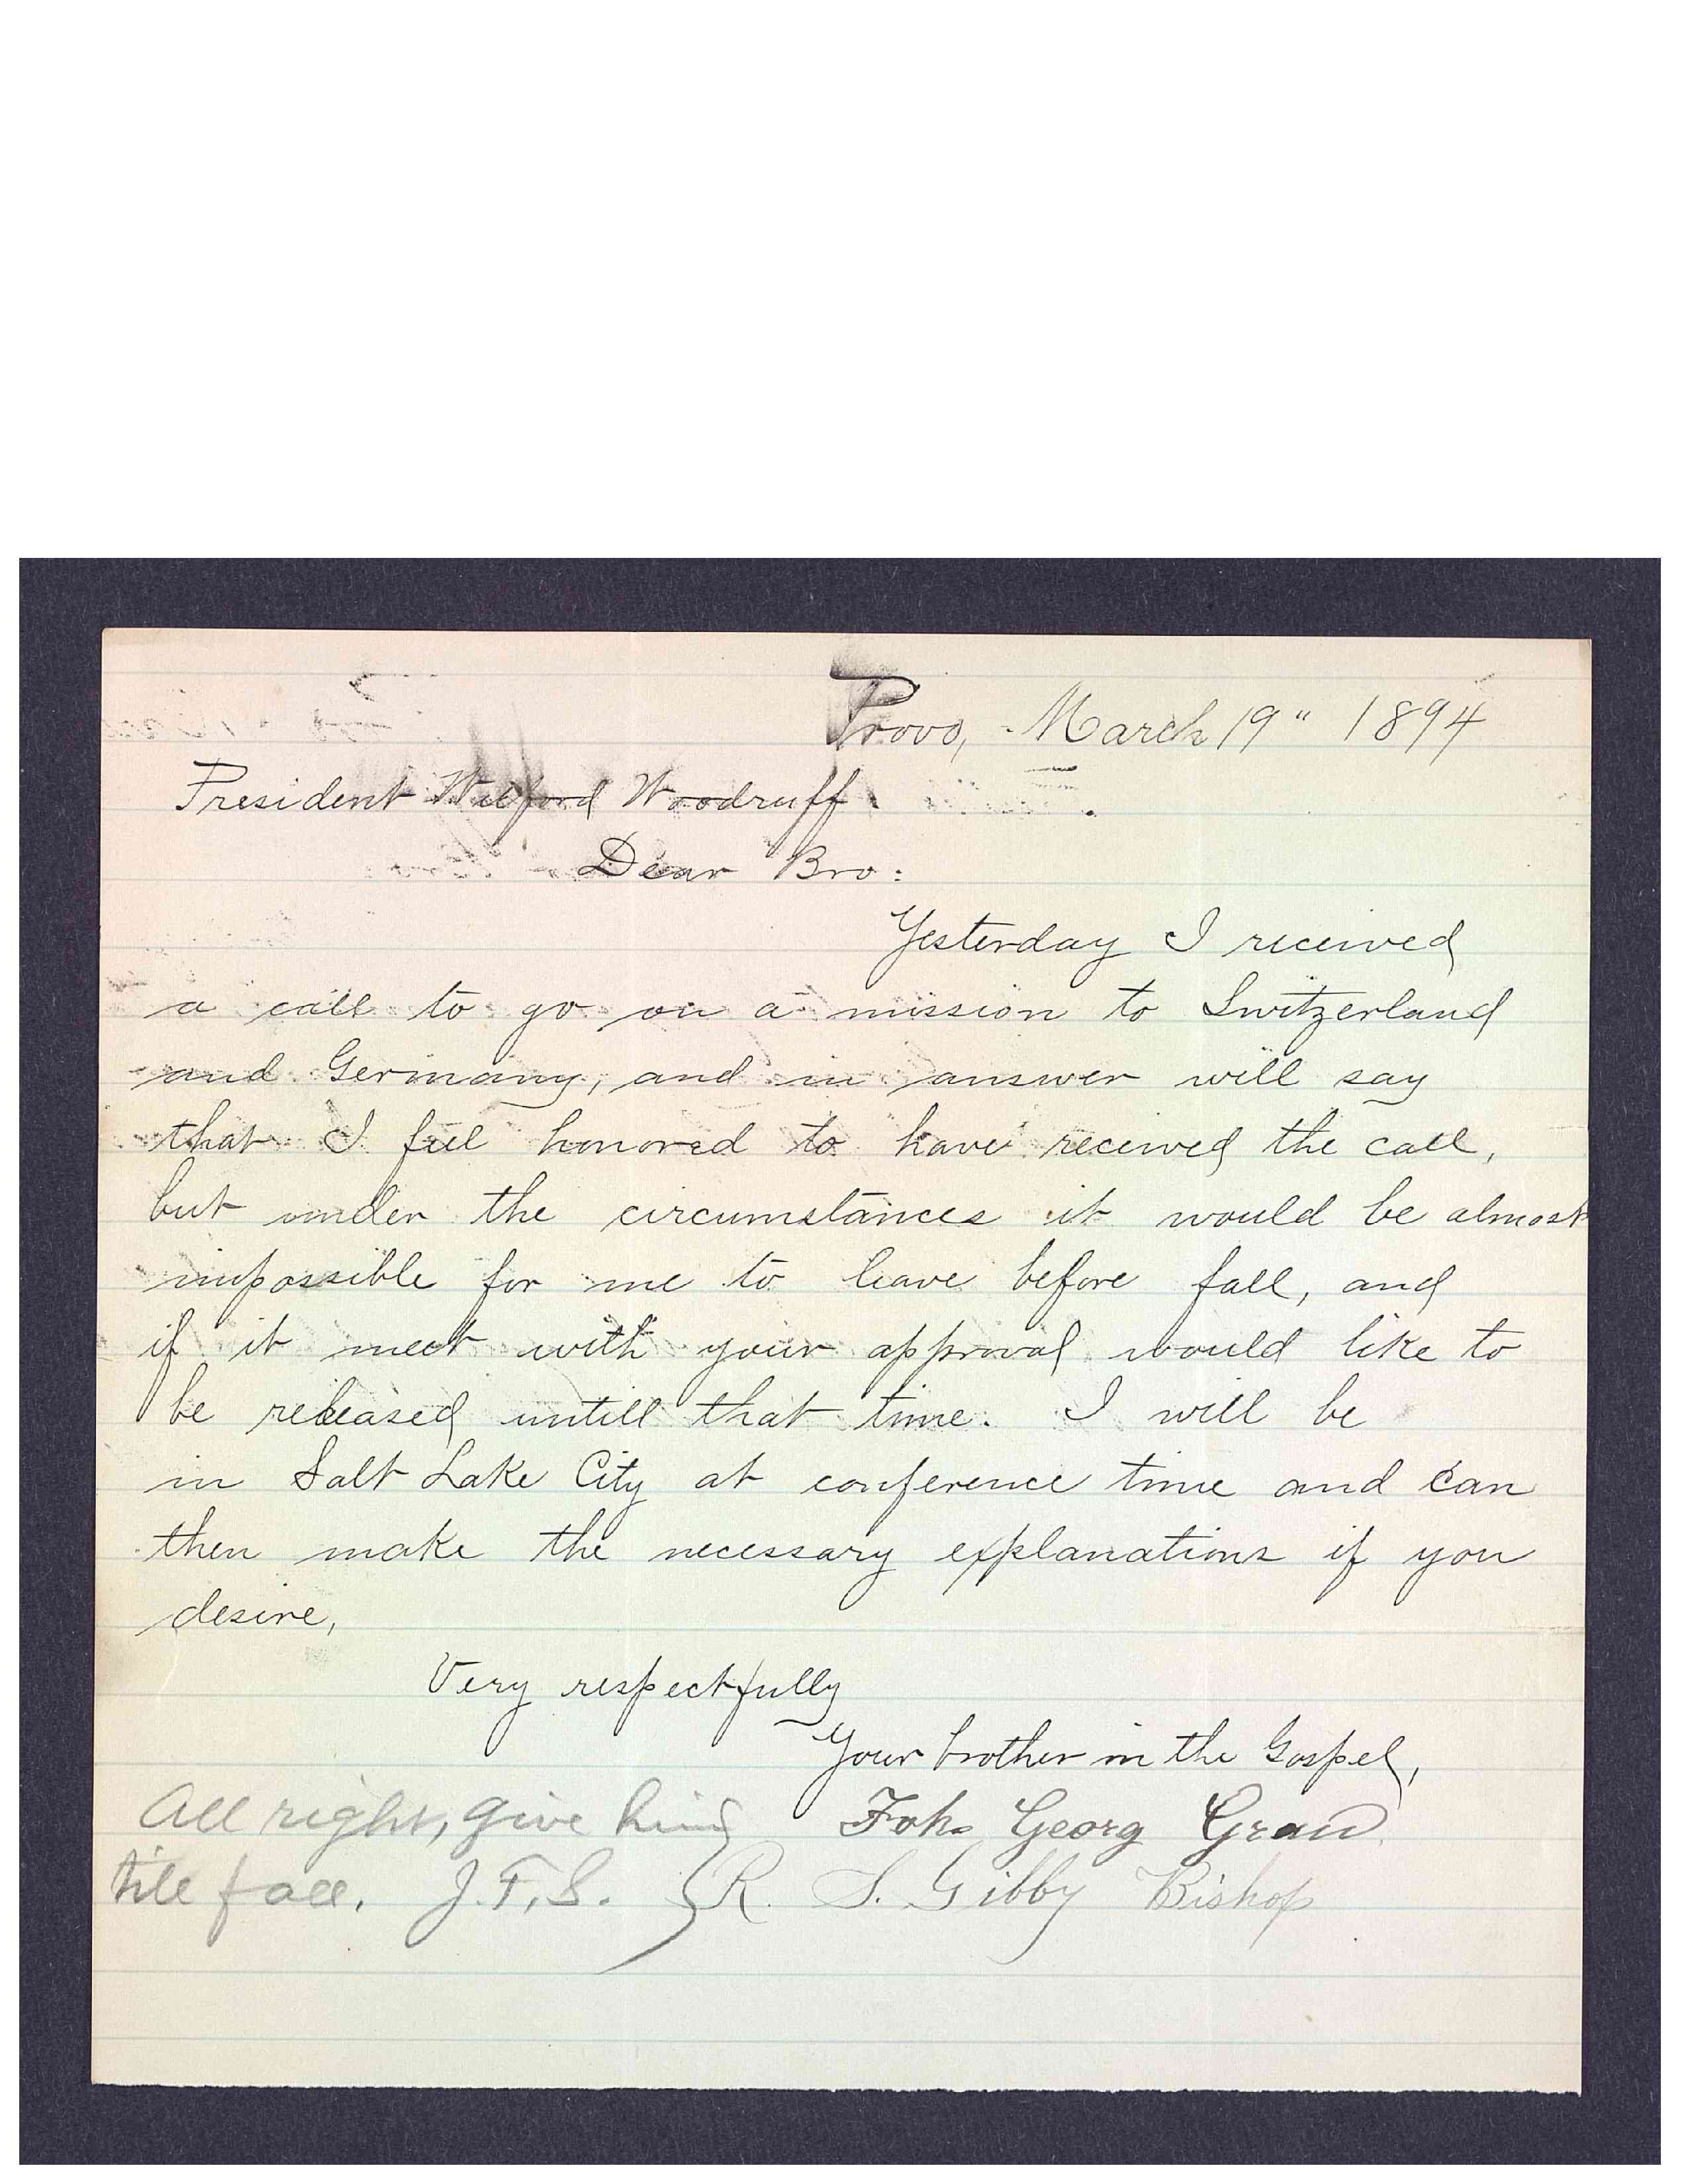 Provo, March 19" 1894
President Wilford Woodruff.
Dear Bro:
Yesterday I received
a call to go on a mission to Switzerland
and Germany, and in answer will say
that I feel honored to have received the call,
but under the circumstances it would be almost
impossible for me to leave before fall, and
if it meet with your approval would like to
be released untill that time. I will be
in Salt Lake City at conference time and can
then make the necessary explanations if you
desire,
Very respectfully
Your brother in the Gospel,
Joh. Georg Grau
R. S. Gibby Bishop
All right, give him
till fall. J.F.S.